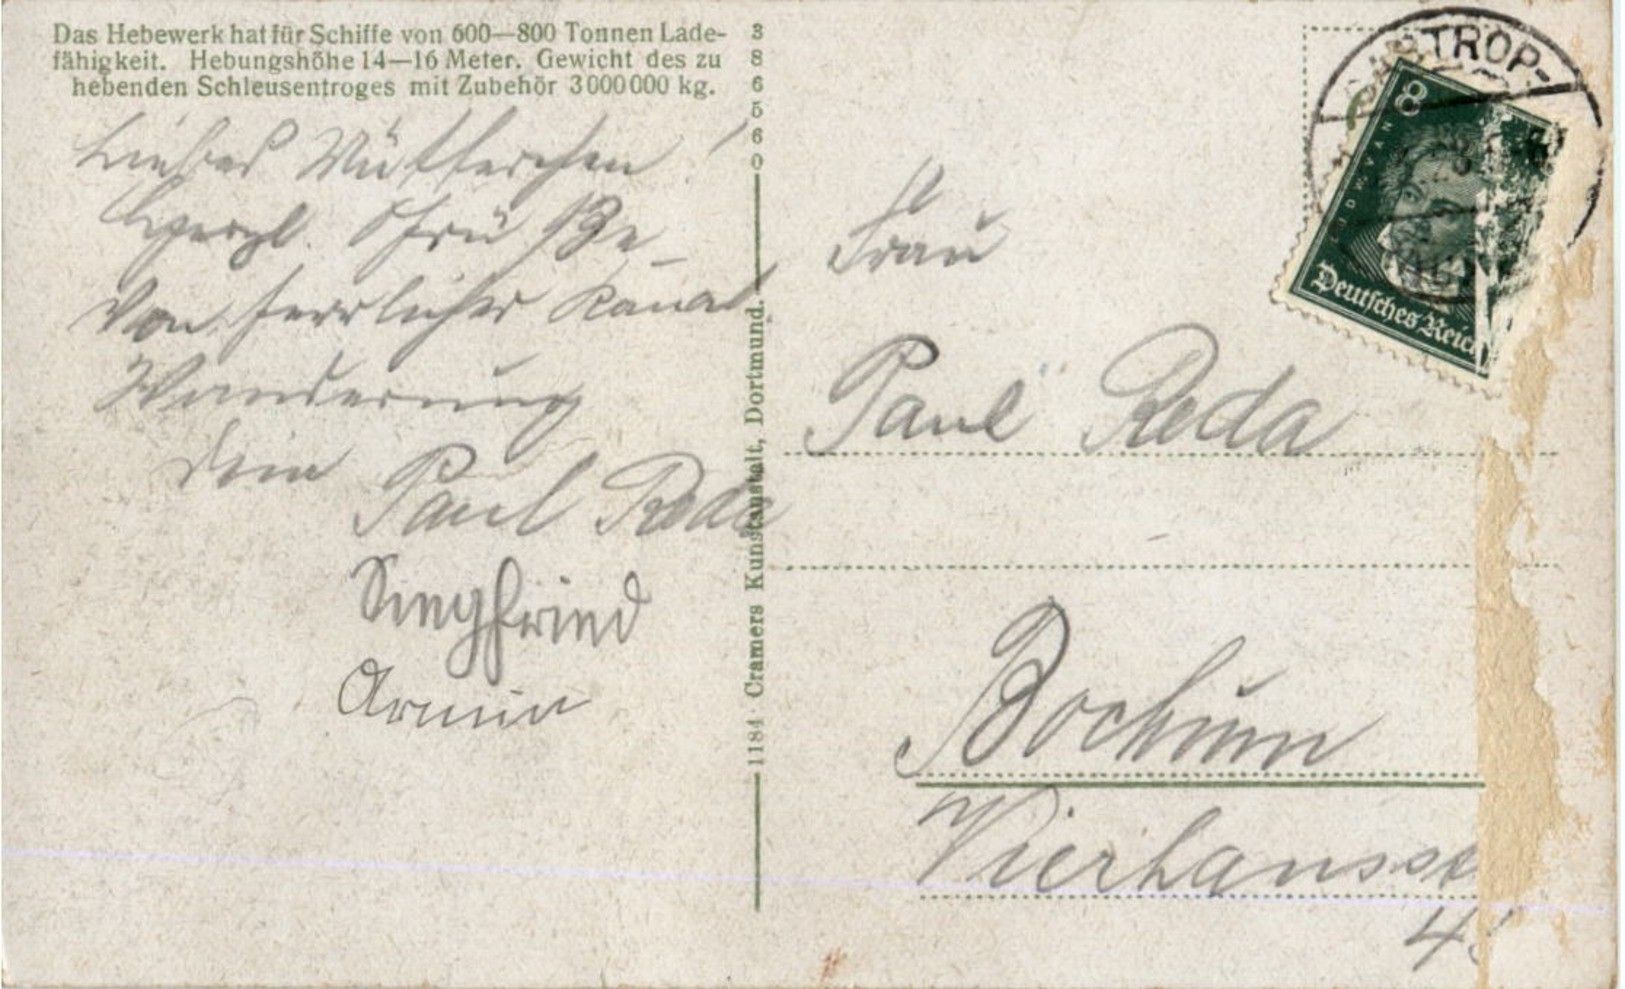 Das Hebewerk hat für Schiffe von 600—800 Tonnen Lade-
fähigkeit. Hebungshöhe 14—16 Meter. Gewicht des zu
hebenden Schleusentroges mit Zubehör 3000000 kg.
Liebes Mütterchen!
Herzl.
von herrlicher Kanal
Wanderung
Dein Paul Reda
Siegfried
Armin
386560
1184 Cramers Kunstanstalt, Dortmund.
TROP-
8
Deutsches Reich
Frau
Paul Reda
Bochum
Vierhausst